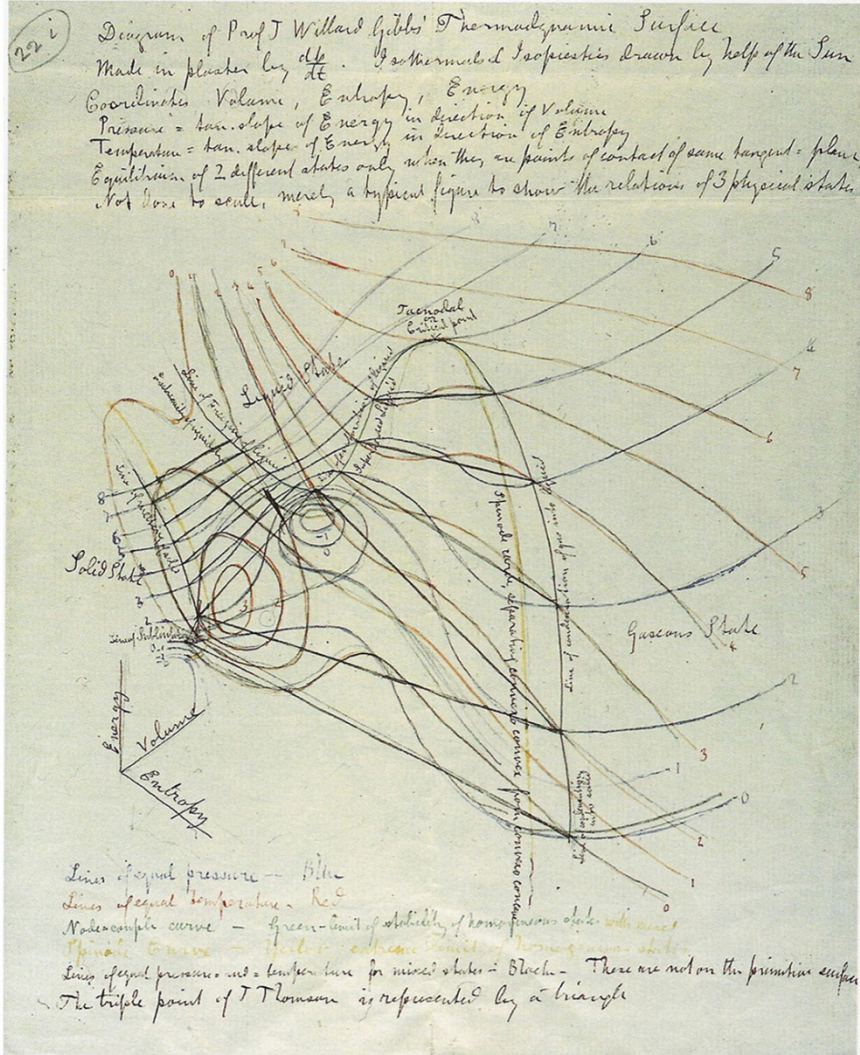 22 i
Diagram of Prof J Willard Gibbs' Thermodynamic Surface
Made in plaster by dp/dt. Isothermals & Isopiestics drawn by help of the Sun
Coordinates Volume, Entropy, Energy
Pressure = tan. slope of Energy in direction of Volume
Temperature = tan. slope of Energy in direction of Entropy
Equilibrium of 2 different states only when they are points of contact of same tangent = plane
Not done to scale, merely a typical figure to show the relations of 3 physical states
8
7
6
5
8
4
7
6
3
5
4
2
3
1
0
2
1
0
Tacnodal
or
Critical point
Liquid State
Line of freezing of liquid
Line of evaporation of liquid
Superheated liquid
Line of melting
Solid State
Line of Sublimation
Spinode curve, separating convexo convex from convexo concave
Line of condensation of gas into liquid
Gaseous State
Energy
Volume
Entropy
Lines of equal pressure — Blue
Lines of equal temperature - Red
Node-couple curve — Green - limit of stability of homogeneous state
Spinode Curve — Yellow extreme limit of homogeneous state
Lines of equal pressure and = temperature for mixed states = Black - These are not on the primitive surface
The triple point of J Thomson is represented by a triangle